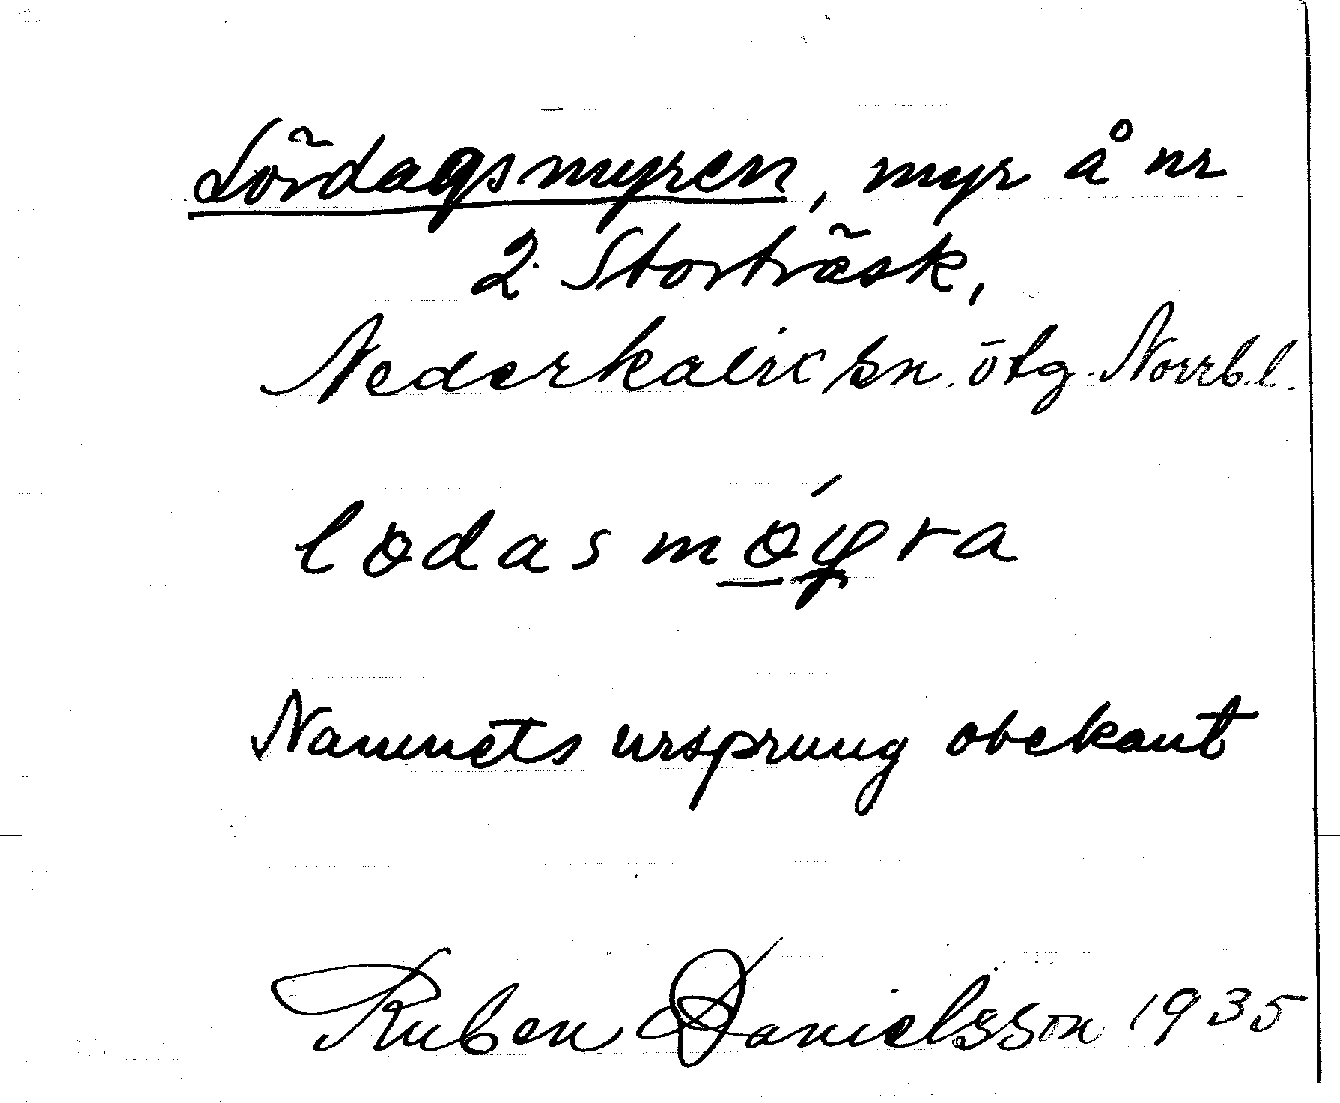 Lördagsmyren, myr å nr
2 Storträsk,
Nederkalix sn. ötg. Norrb.l.
lodasmøyra
Namnets ursprung obekant
Ruben Danielsson 1935